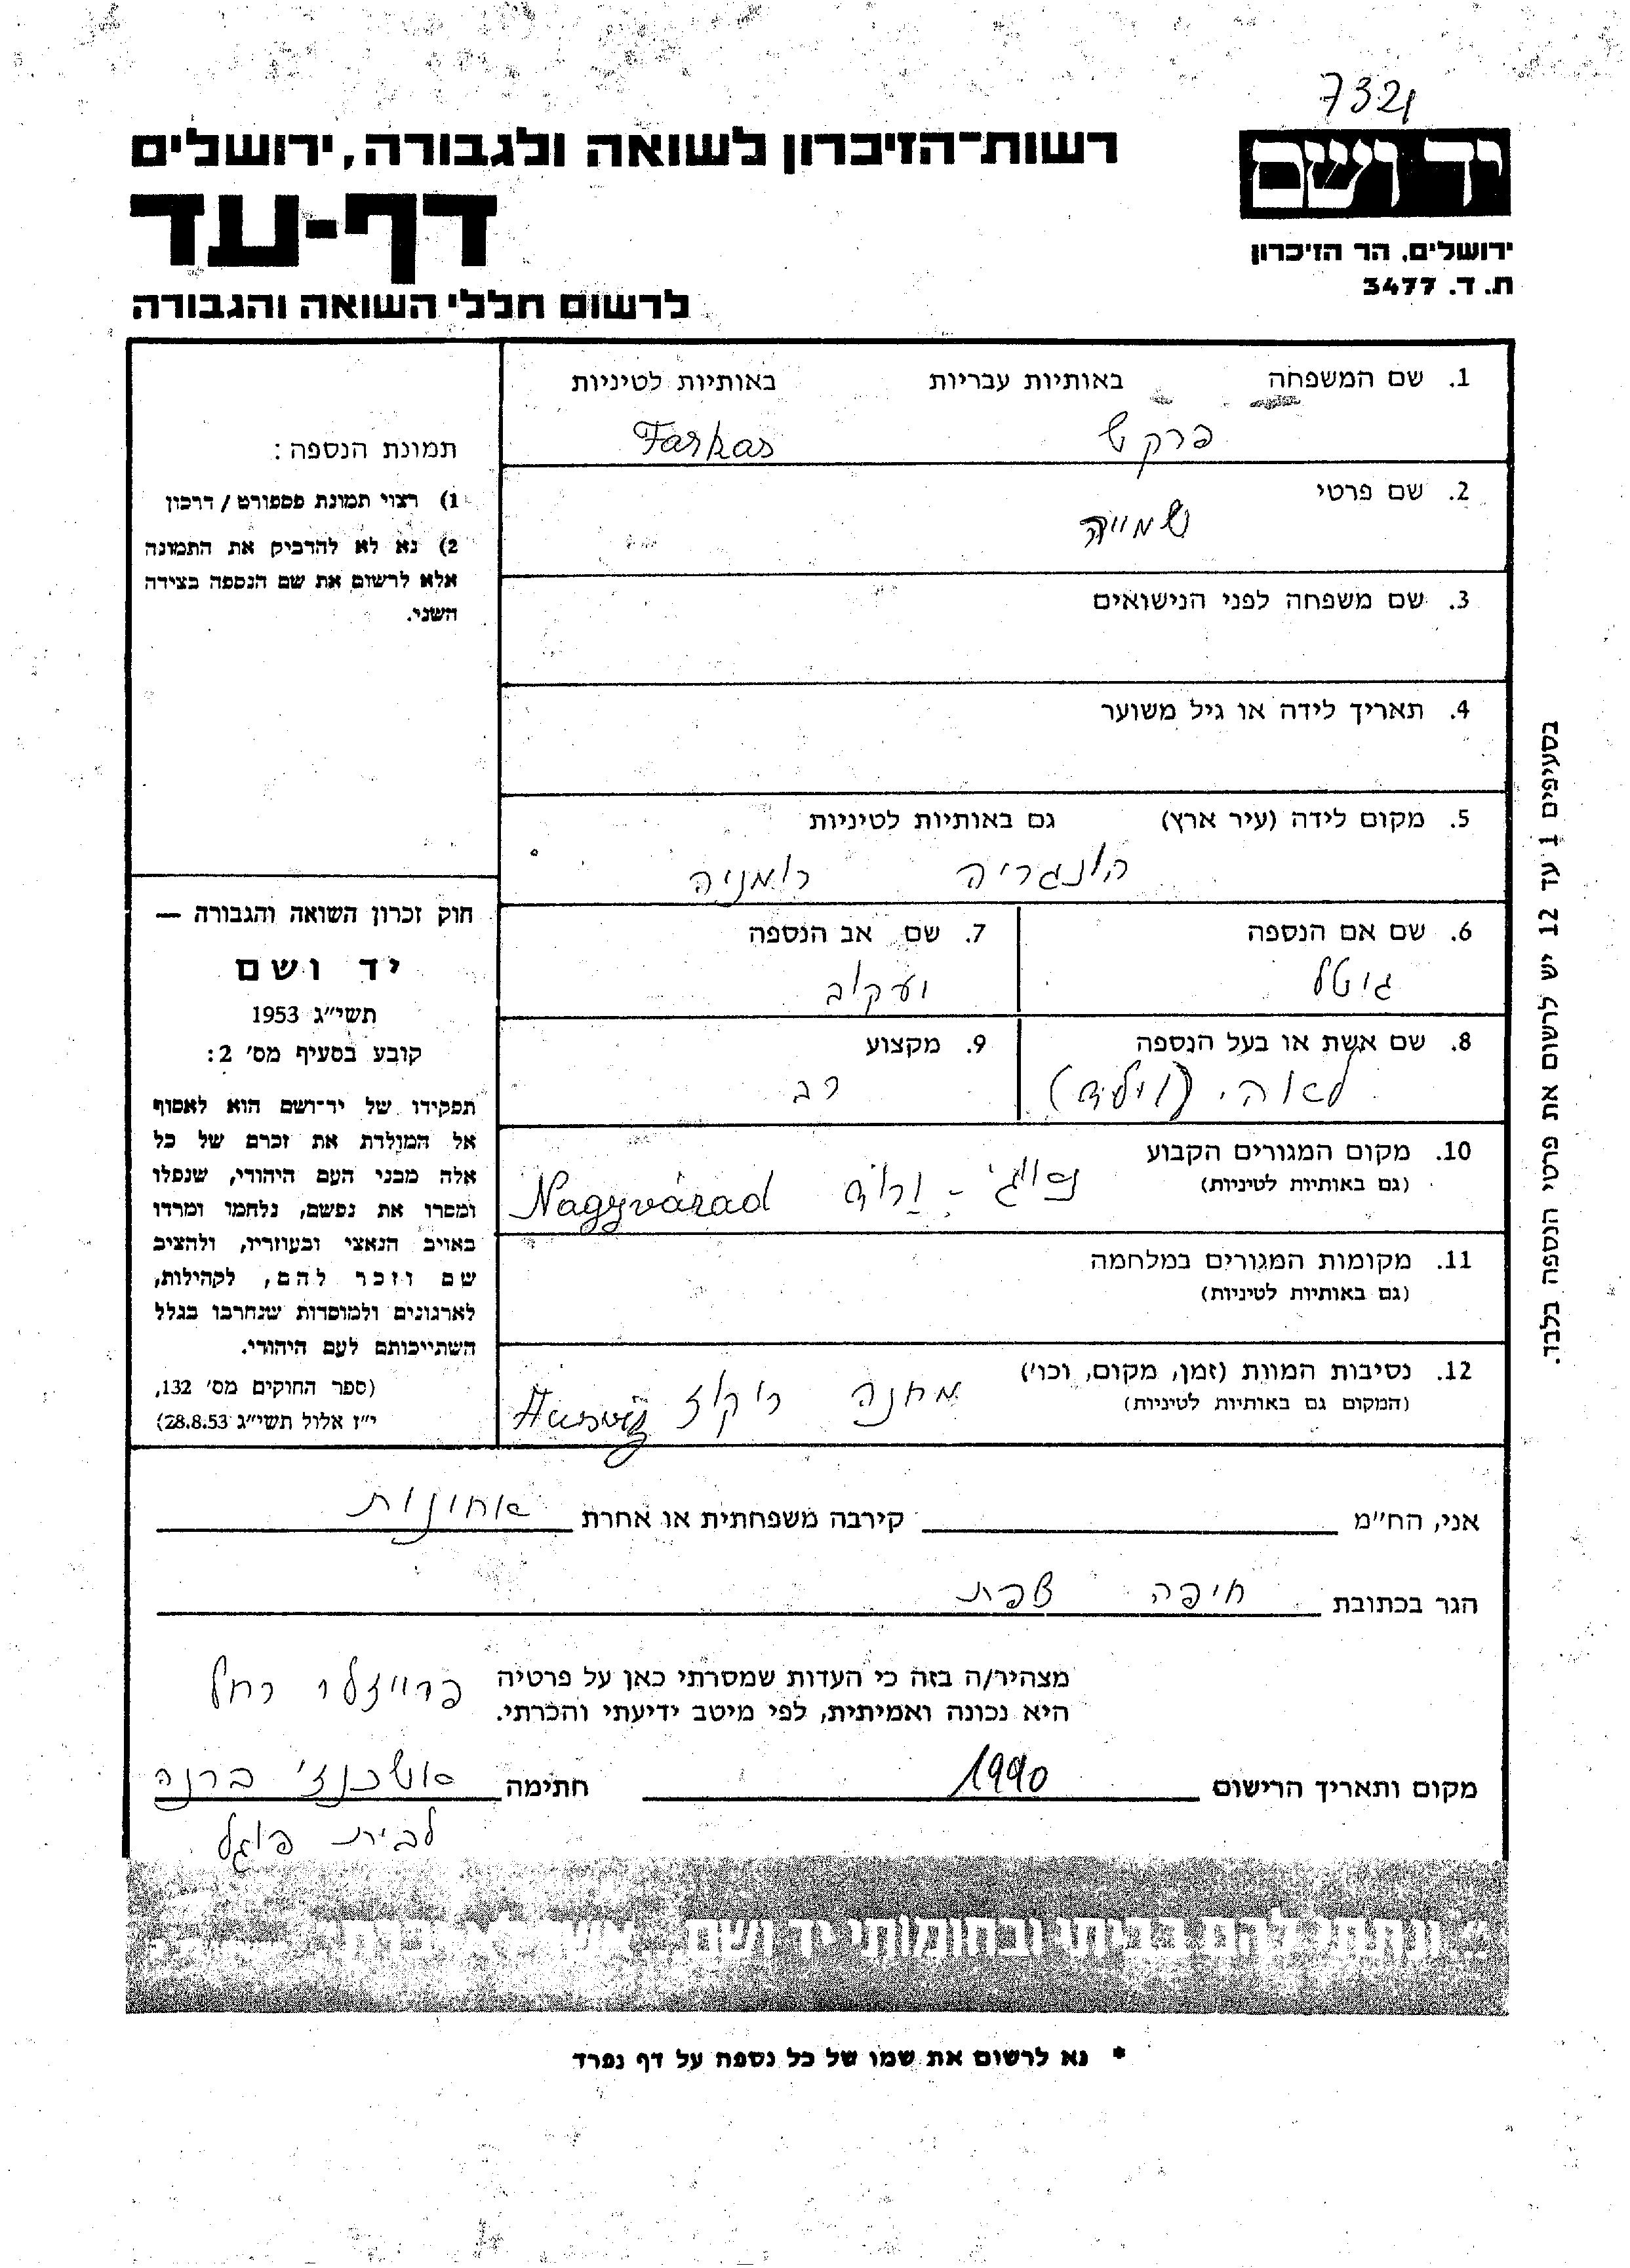 7321
יד ושם
ירושלים, הר הזיכרון
ת. ד. 3477
רשות־הזיכרון לשואה ולגבורה, ירושלים
דף-עד
לרשום חללי השואה והגבורה
1. שם המשפחה באותיות עבריות באותיות לטיניות
פרקש Farkas
2. שם פרטי
שמייה
3. שם משפחה לפני הנישואים
4. תאריך לידה או גיל משוער
5. מקום לידה (עיר ארץ) גם באותיות לטיניות
הונגריה רומניה
6. שם אם הנספה 7. שם אב הנספה
גיטל יעקוב
8. שם אשת או בעל הנספה 9. מקצוע
לאה רב
10. מקום המגורים הקבוע
(גם באותיות לטיניות)
Nagyvárad
11. מקומות המגורים במלחמה
(גם באותיות לטיניות)
12. נסיבות המוות (זמן, מקום, וכו')
(המקום גם באותיות לטיניות)
מחנה ריכוז
תמונת הנספה:
1) רצוי תמונת פספורט / דרכון
2) נא לא להדביק את התמונה
אלא לרשום את שם הנספה בצידה
השני.
חוק זכרון השואה והגבורה —
יד ושם
תשי"ג 1953
קובע בסעיף מס' 2:
תפקידו של יד־ושם הוא לאסוף
אל המולדת את זכרם של כל
אלה מבני העם היהודי, שנפלו
ומסרו את נפשם, נלחמו ומרדו
באויב הנאצי ובעוזריו, ולהציב
שם וזכר להם, לקהילות,
לארגונים ולמוסדות שנחרבו בגלל
השתייכותם לעם היהודי.
(ספר החוקים מס' 132,
י"ז אלול תשי"ג 28.8.53)
בסעיפים 1 עד 12 יש לרשום את פרטי הנספה בלבד.
אני, הח"מ קירבה משפחתית או אחרת אחינות
הגר בכתובת חיפה צפת
מצהיר/ה בזה כי העדות שמסרתי כאן על פרטיה פרייזלר רחל
היא נכונה ואמיתית, לפי מיטב ידיעתי והכרתי.
מקום ותאריך הרישום 1990 חתימה אשכנזי ברנה
לבית פוגל
"ונתתי להם בביתי ובחומותי יד ושם... אשר לא יכרת"
* נא לרשום את שמו של כל נספה על דף נפרד